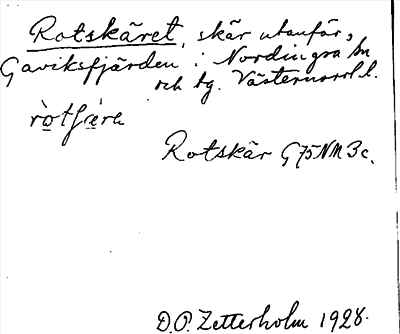 Rotskäret, skär utanför,
Gaviksfjärden i Nordingra sn
och tg. Västernorrl. l.
Rotskär G75NM3c.
D.O. Zetterholm 1928.